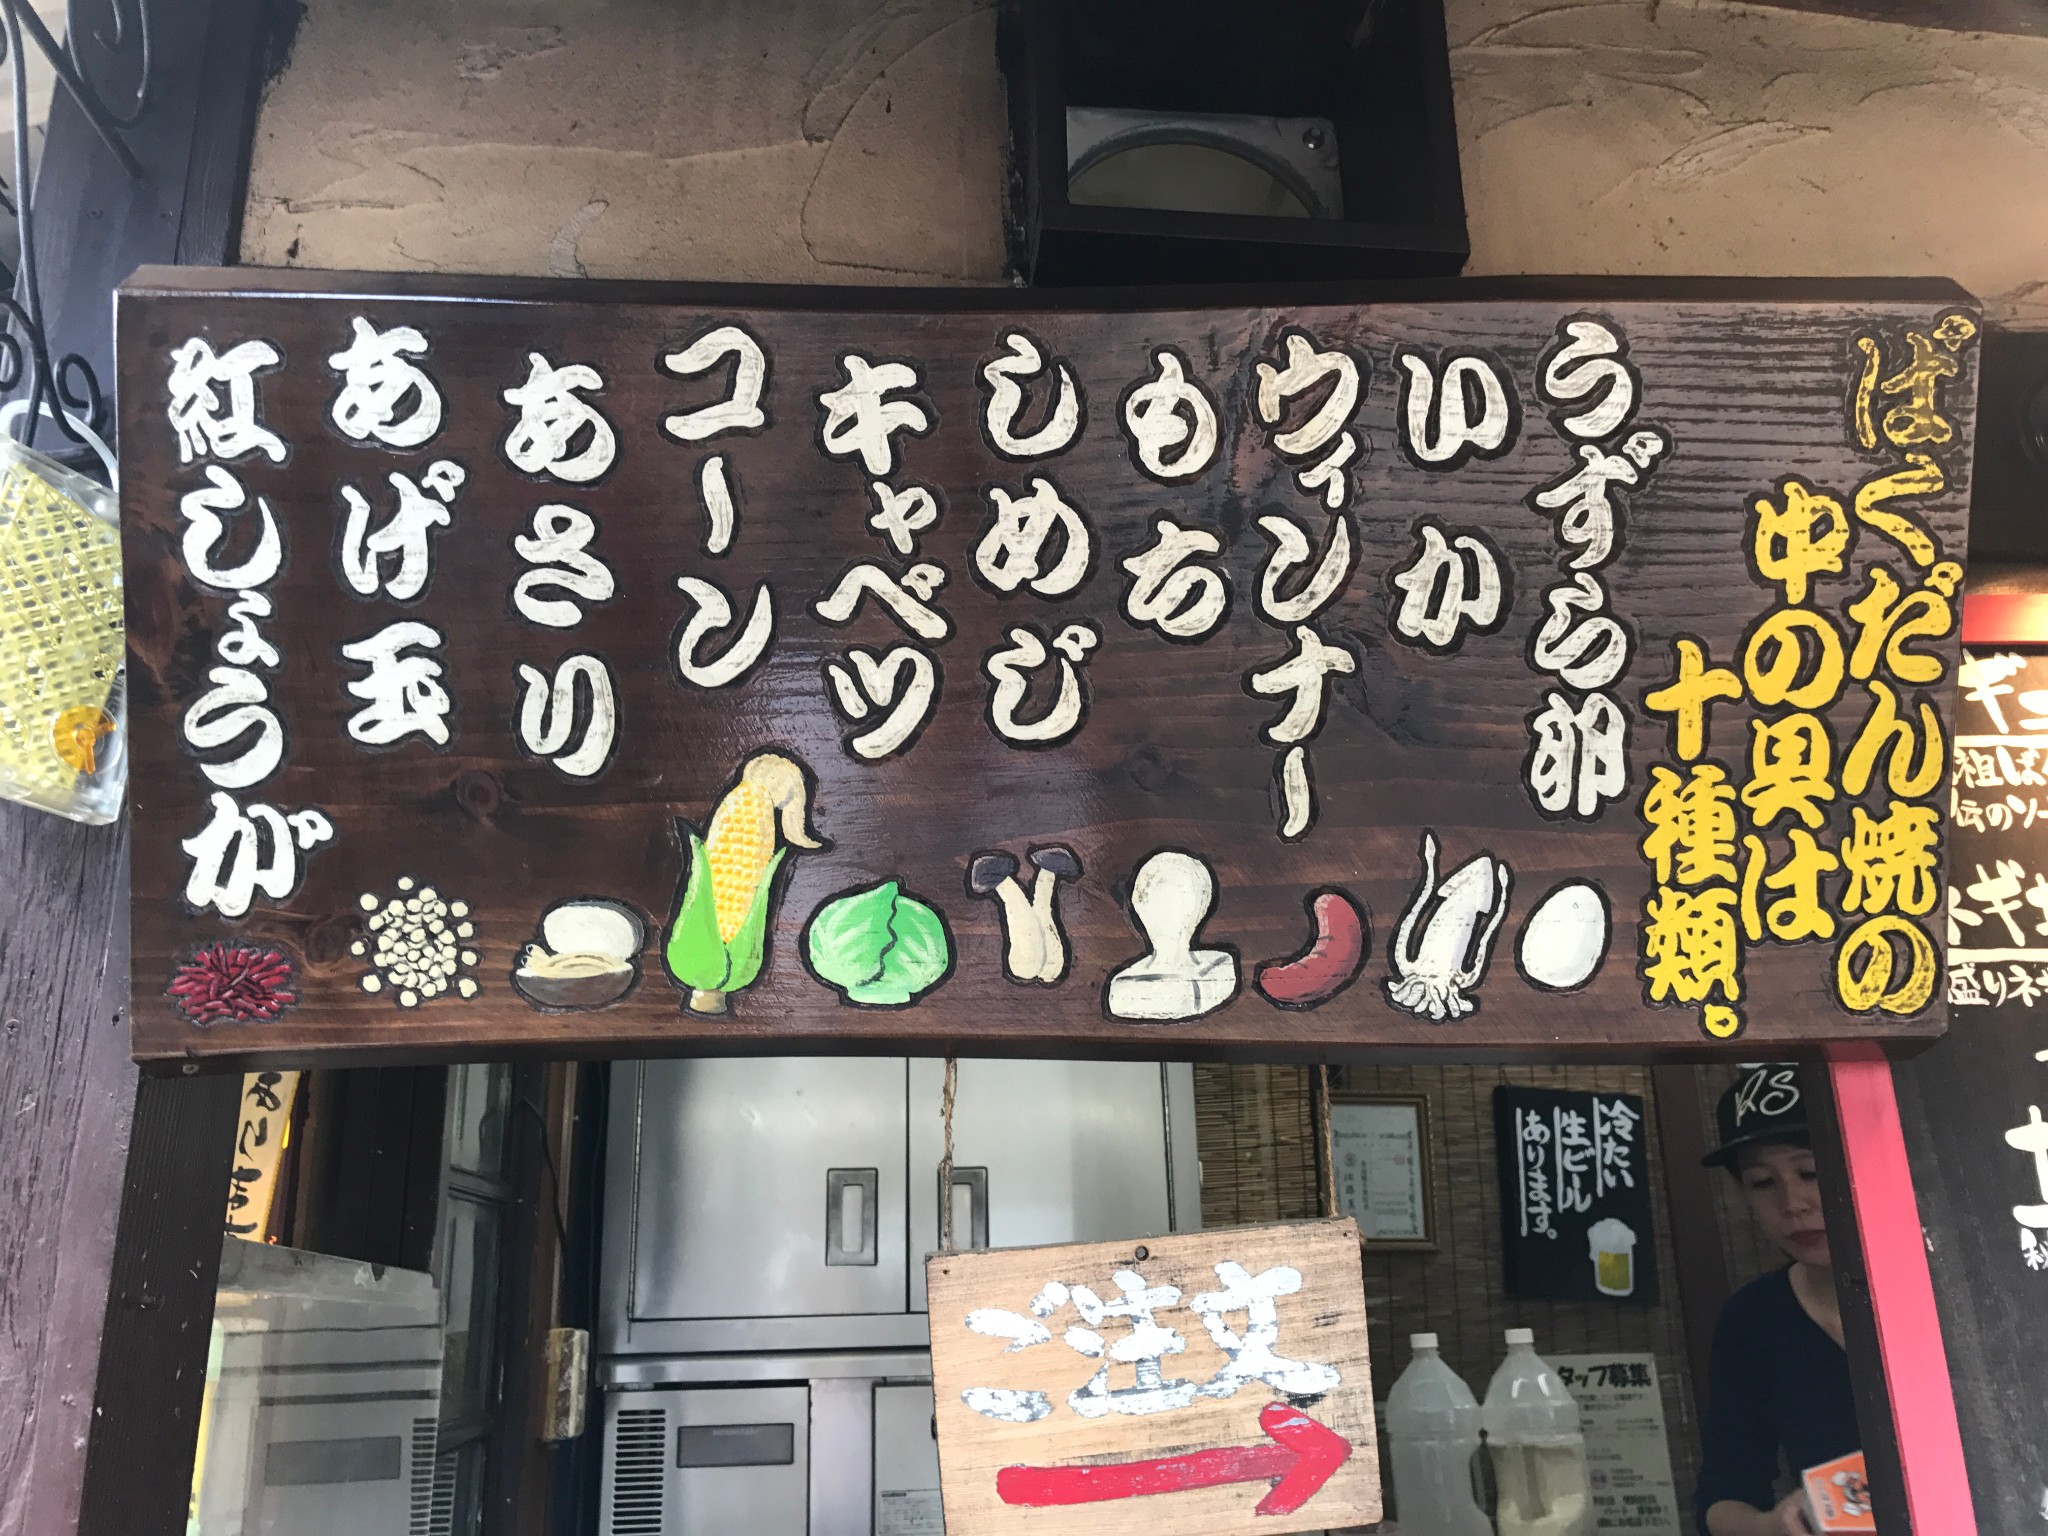 ばくだん焼の
中の具は
十種類。
うずら卵
いか
ウィンナー
もち
しめじ
キャベツ
コーン
あさり
あげ玉
紅しょうが
冷たい
生ビール
あります。
ご注文
タッフ募集
RS
盛りネギ
伝のソー